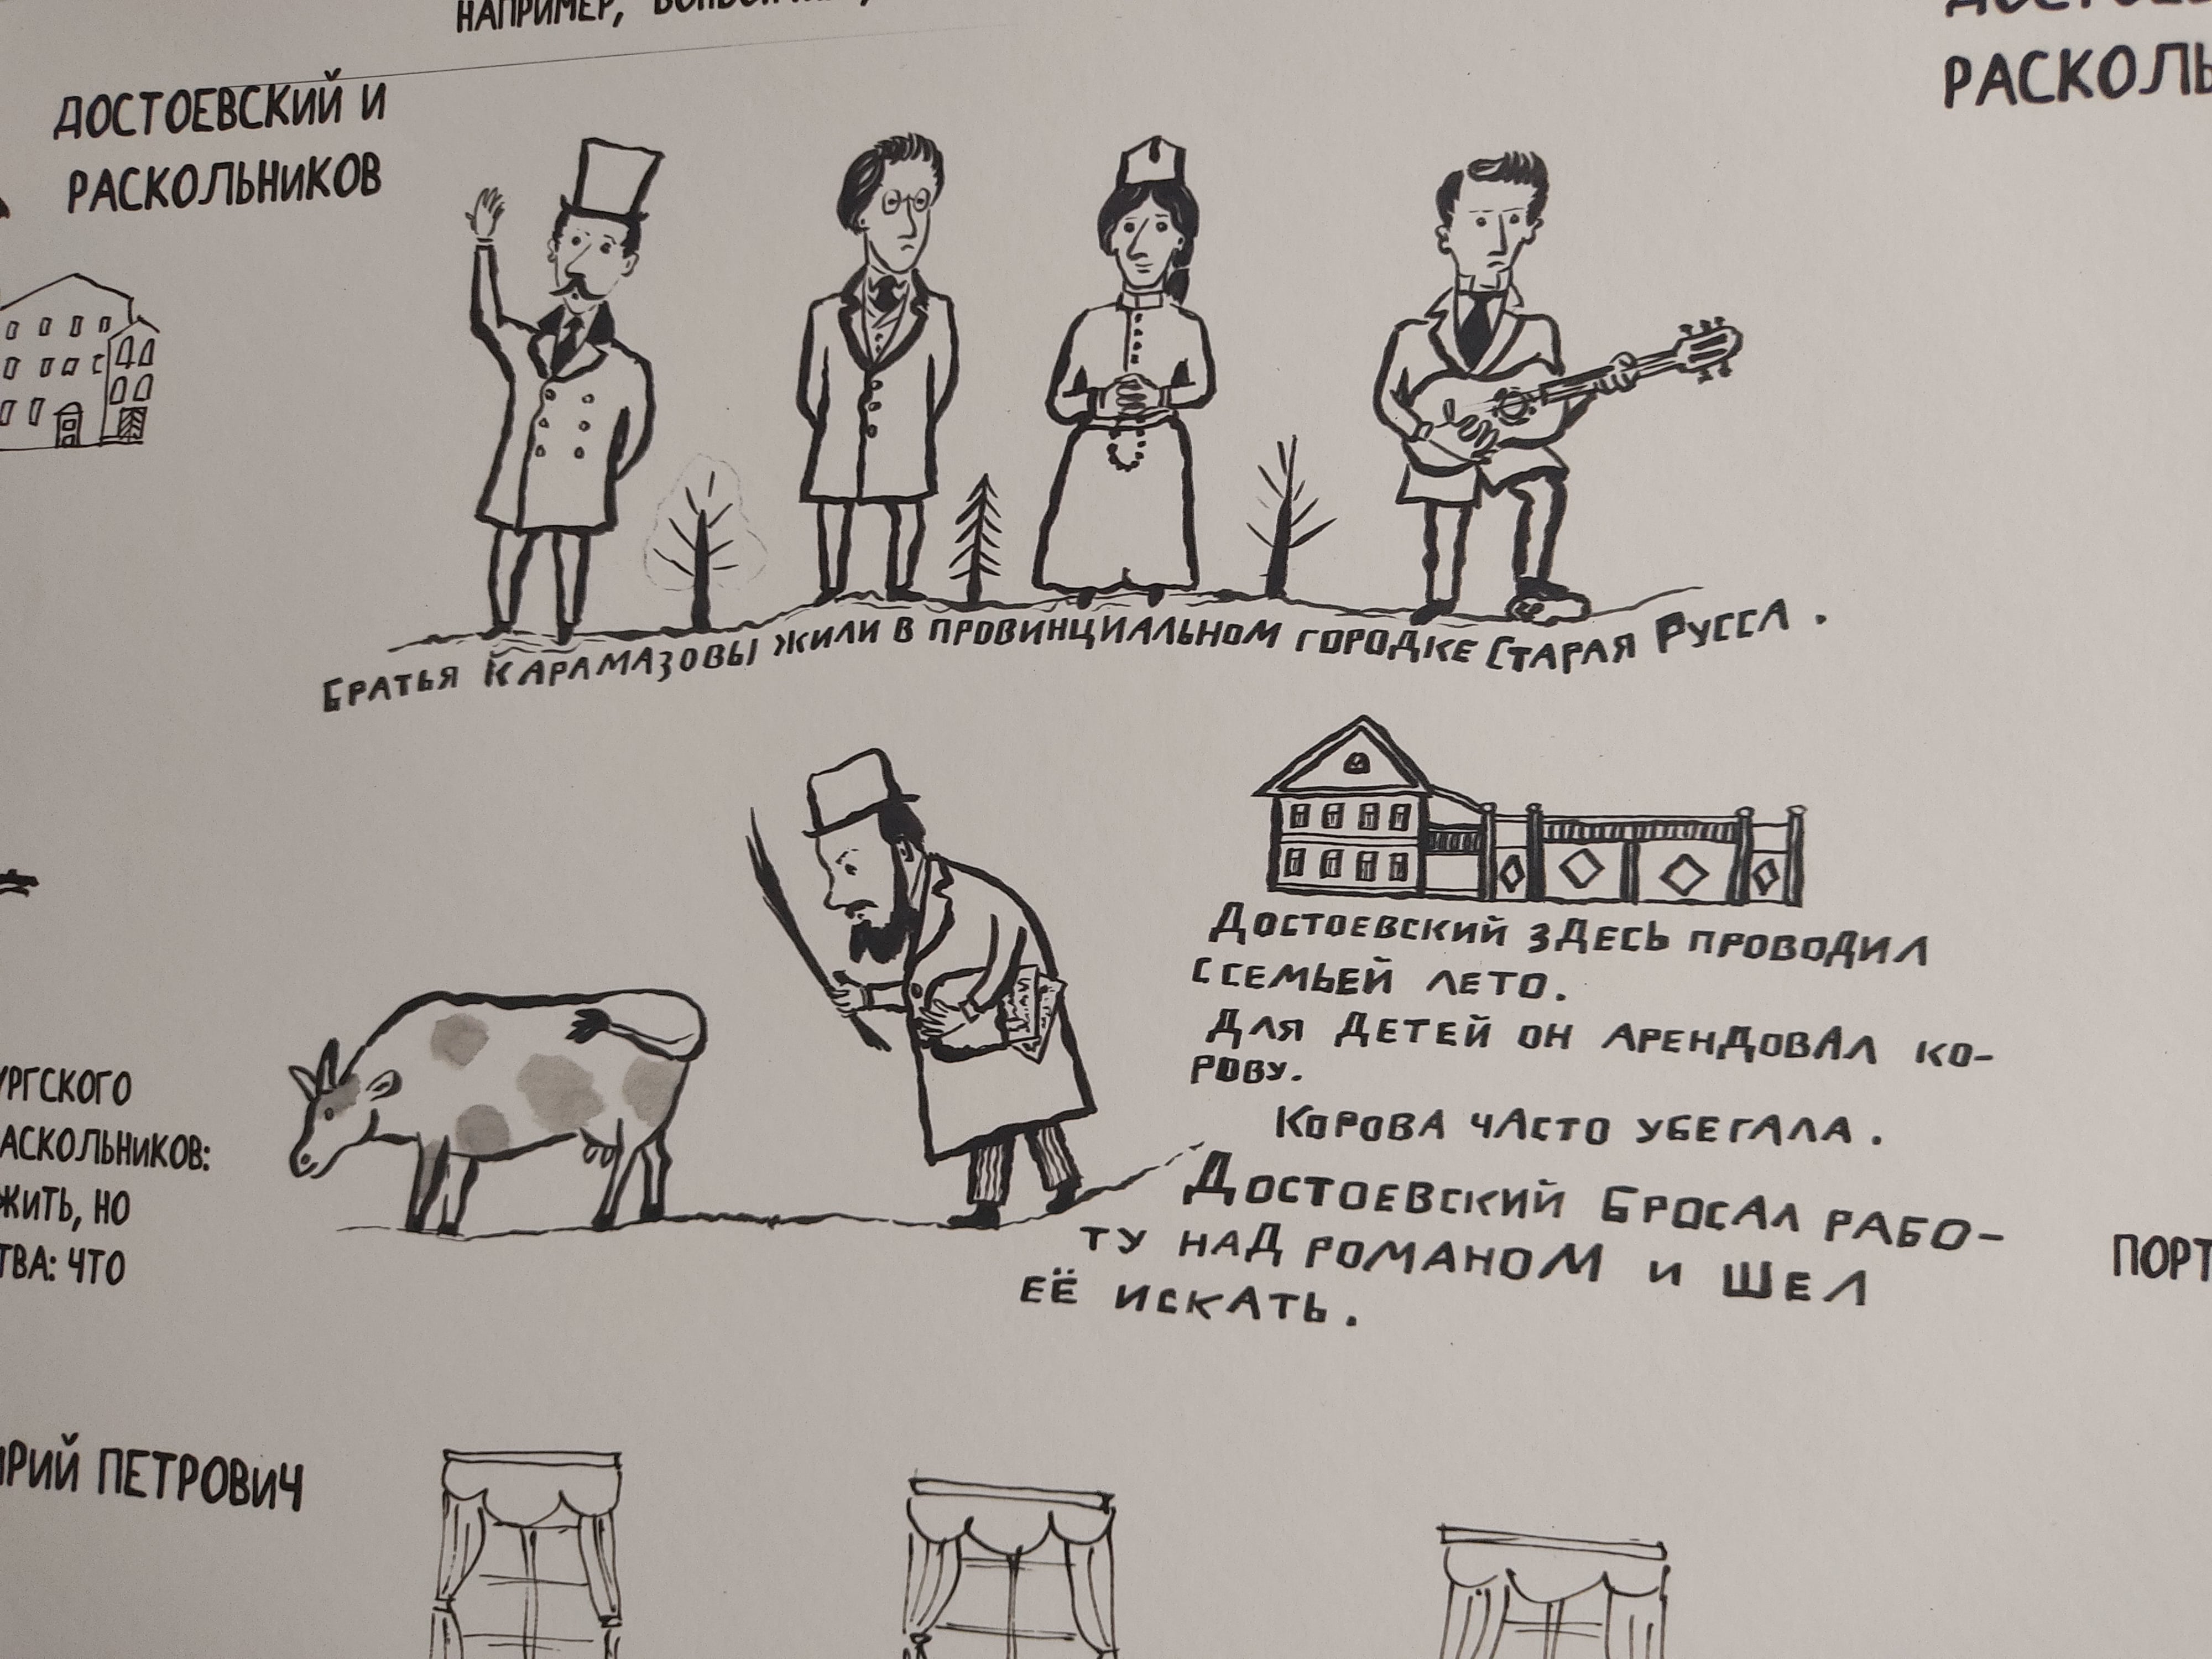 НАПРИМЕР,
ДОСТОЕВСКИЙ И
РАСКОЛЬНИКОВ
БРАТЬЯ КАРАМАЗОВЫ ЖИЛИ В ПРОВИНЦИАЛЬНОМ ГОРОДКЕ СТАРАЯ РУССА.
ДОСТОЕВСКИЙ ЗДЕСЬ ПРОВОДИЛ
С СЕМЬЕЙ ЛЕТО.
ДЛЯ ДЕТЕЙ ОН АРЕНДОВАЛ КО-
РОВУ.
КОРОВА ЧАСТО УБЕГАЛА.
ДОСТОЕВСКИЙ БРОСАЛ РАБО-
ТУ НАД РОМАНОМ И ШЕЛ
ЕЁ ИСКАТЬ.
ЖИТЬ, НО
ЧТО
ПЕТРОВИЧ